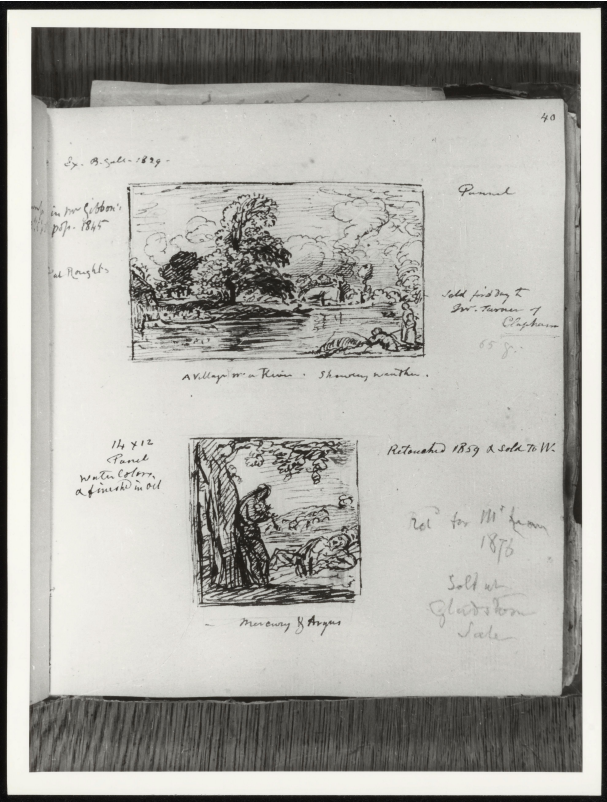 40
Ex. B. Gall. 1839 -
Pannel
in Mr Gibbon's
1845
Sold first day to
Mr. Turner of
Clapham
65 g.
A Village on a River. Showery weather.
14 x 12
Panel
Water Colors
& finished in oil
Retouched 1859 & sold to W.
for Mr
1876
Sold at
Gladstone
Sale
Mercury & Argus